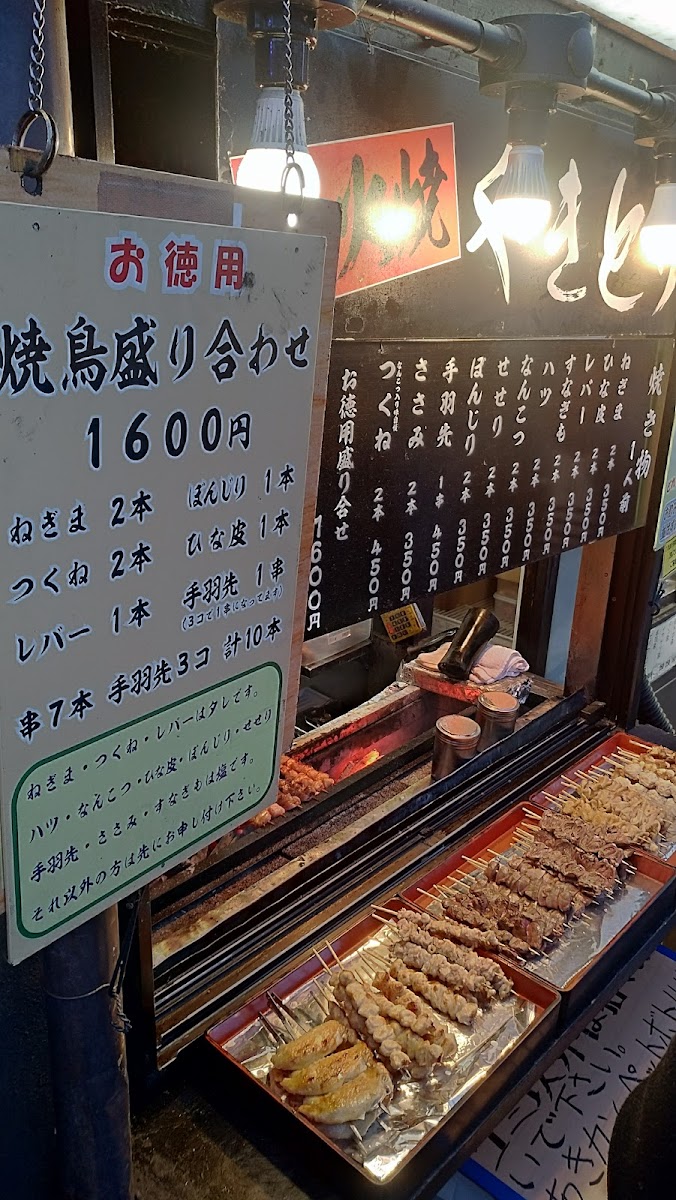 お徳用
焼鳥盛り合わせ
1600円
ねぎま 2本 ぼんじり 1本
つくね 2本 ひな皮 1本
レバー 1本 手羽先 1串
(3コで1串になってます)
串7本 手羽先3コ 計10本
ねぎま・つくね・レバーはタレです。
ハツ・なんこつ・ひな皮・ぼんじり・せせり
手羽先・ささみ・すなぎもは塩です。
それ以外の方は先にお申し付け下さい。
火焼
やきとり
焼き物
一人前
ねぎま 2本 350円
ひな皮 2本 350円
レバー 2本 350円
すなぎも 2本 350円
ハツ 2本 350円
なんこつ 2本 350円
せせり 2本 350円
ぼんじり 2本 350円
手羽先 1串 450円
ささみ 2本 350円
つくね 2本 450円
お徳用盛り合せ 1600円